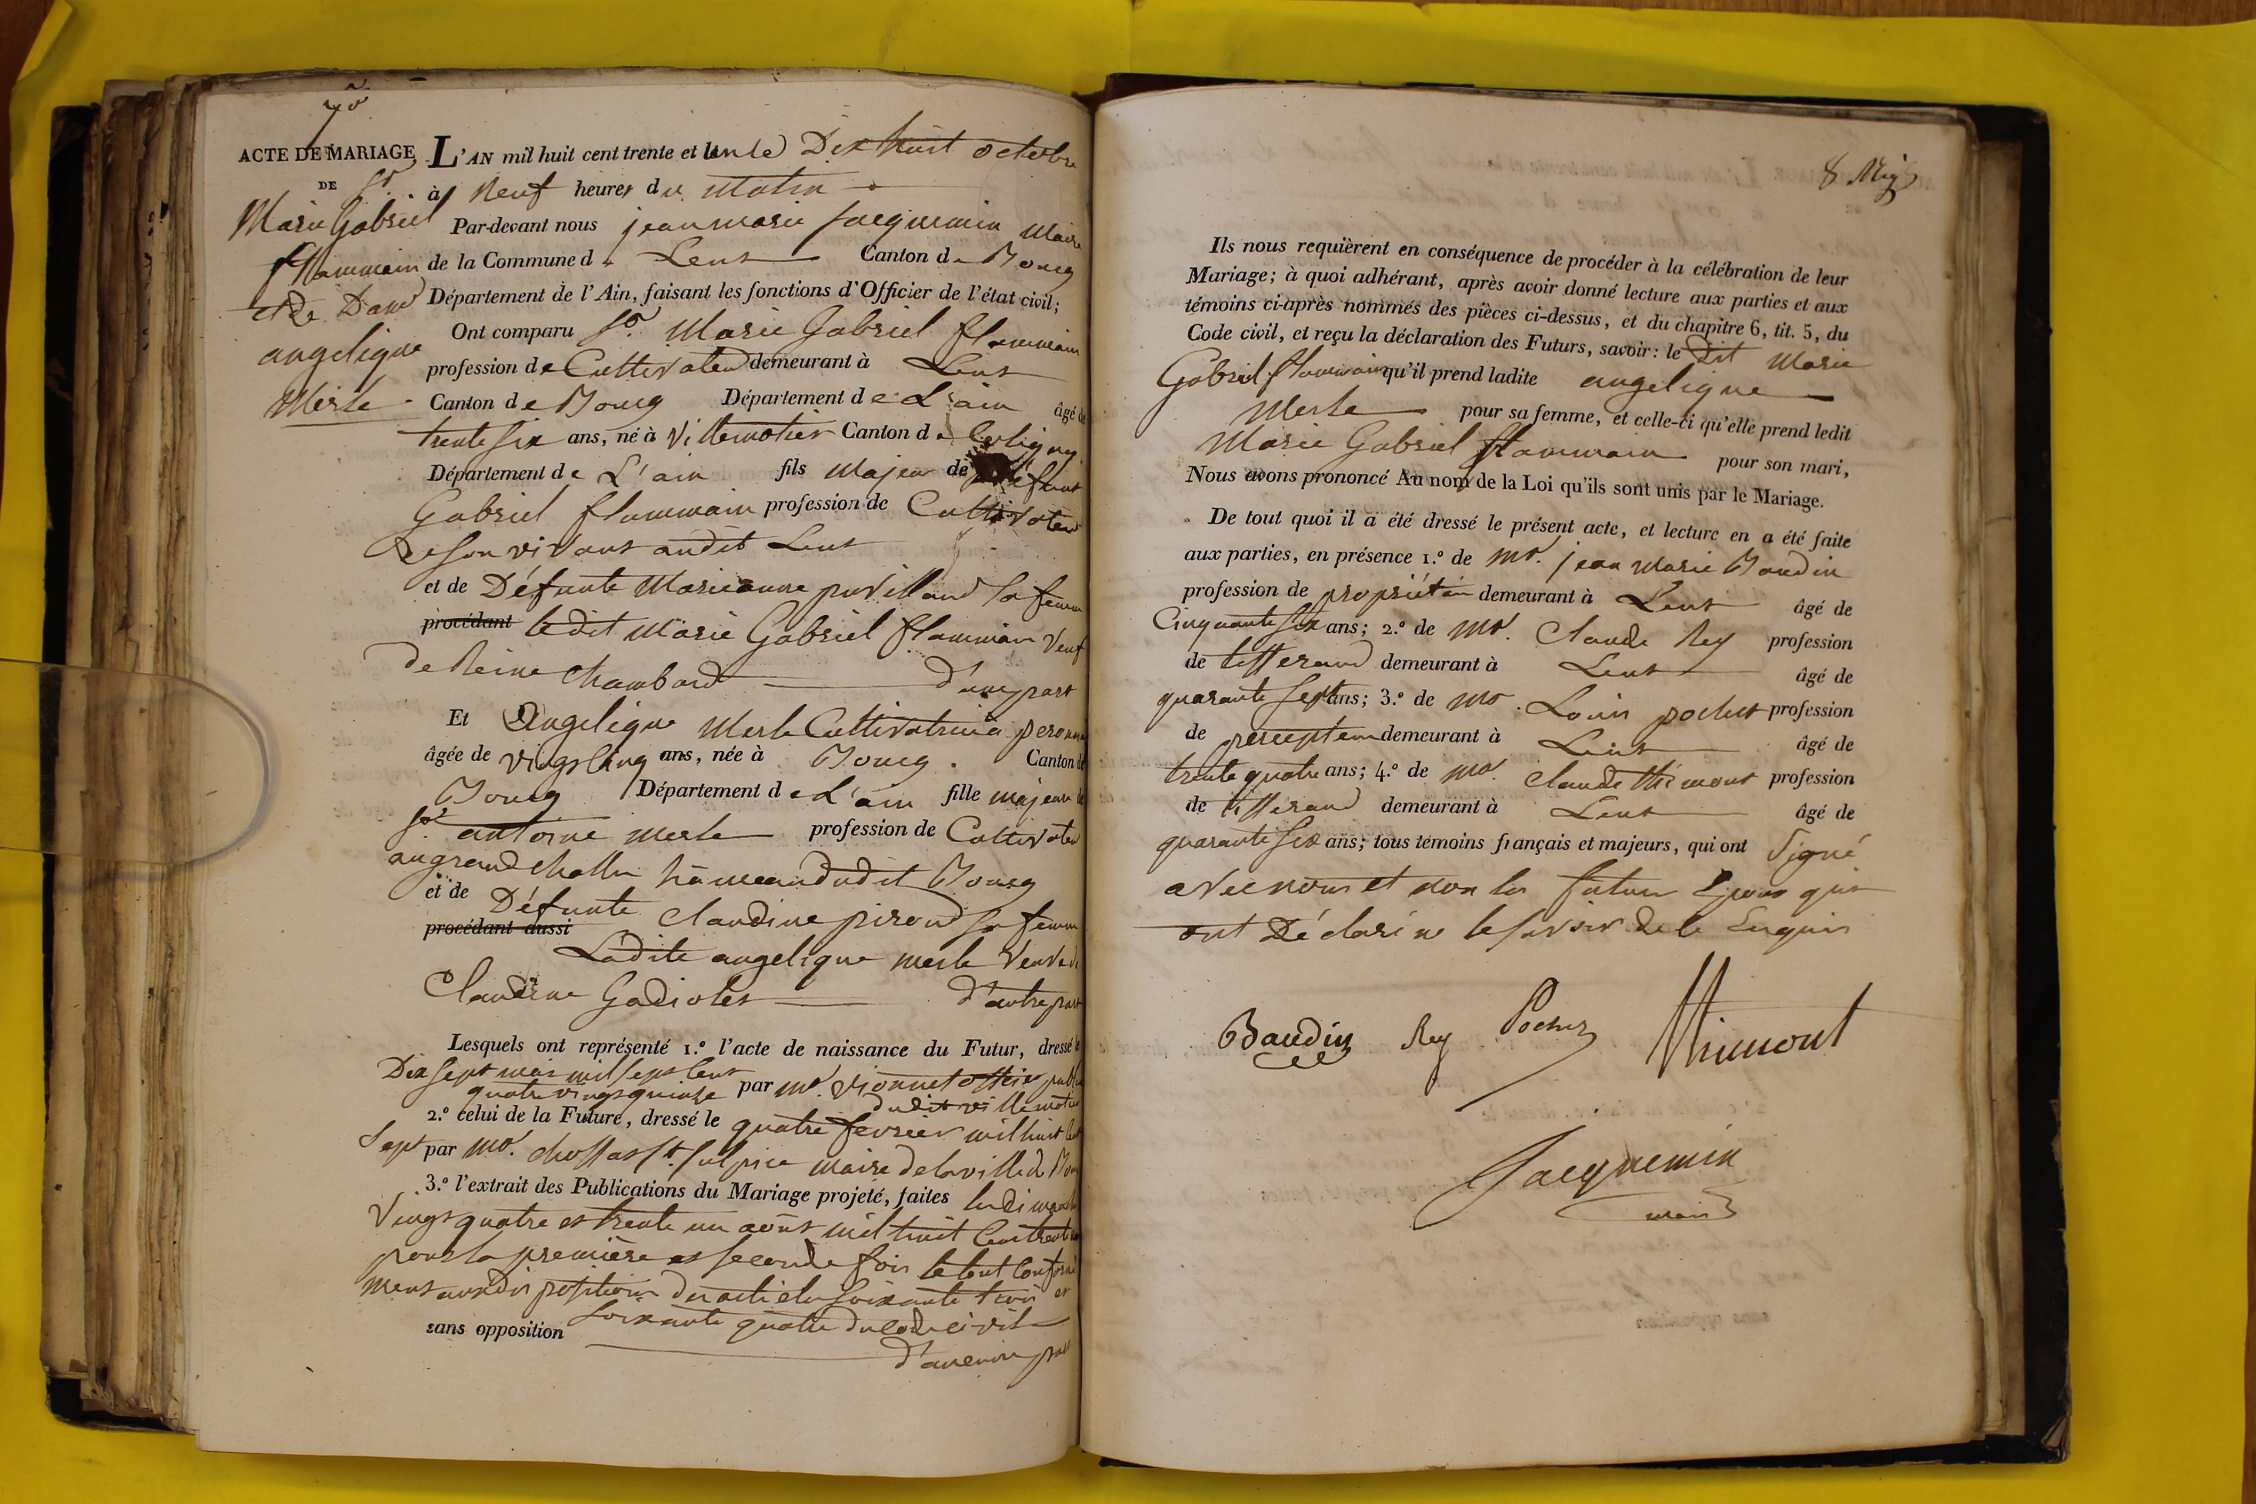 7e
ACTE DE MARIAGE
DE Sr
Marie Gabriel
flammain
et de Dame
angelique
Merle
L'AN mil huit cent trente et un le Dix huit octobre
à Neuf heures du Matin
Par-devant nous jean marie Jacquemin Maire
de la Commune de Lent Canton de Bourg
Département de l'Ain, faisant les fonctions d'Officier de l'état civil;
Ont comparu Sr. Marie Gabriel flammain
profession de Cultivateur demeurant à Lent
Canton de Bourg Département de L'ain âgé de
trente six ans, né à Villemotier Canton de Coligny
Département de L'ain fils Majeur de défunt
Gabriel flammain profession de Cultivateur
De son vivant audit Lent
et de Défunte Marieanne puvilland sa femme
procédant ledit Marie Gabriel flammain Veuf
de Reine Chambard d'une part
Et Angelique Merle Cultivatrice à peronnas
âgée de vingt cinq ans, née à Bourg. Canton de
Bourg Département de L'ain fille majeure de
Sr antoine merle profession de Cultivateur
au grand Challes hameau dudit Bourg
et de Défunte Claudine piroud sa femme
procédant aussi
Ladite angelique merle Veuve de
Claudine Gadiolet d'autre part
Lesquels ont représenté 1.º l'acte de naissance du Futur, dressé le
Dix sept mai mil sept cent
quatre vingt quinze par mr. vionnet officier public
dudit villemotier
2.º celui de la Future, dressé le quatre fevrier mil huit Cent
Sept par mr. Chossat St. Sulpice maire de la ville de Bourg
3.º l'extrait des Publications du Mariage projeté, faites les dimanches
Vingt quatre et trente un août mil huit Cent trente un
pour la première et seconde fois le tout Conformé
ment aux dispositions des articles Soixante trois et
Soixante quatre du code civil
sans opposition d'aucune part
8 Mig
Ils nous requièrent en conséquence de procéder à la célébration de leur
Mariage; à quoi adhérant, après avoir donné lecture aux parties et aux
témoins ci-après nommés des pièces ci-dessus, et du chapitre 6, tit. 5, du
Code civil, et reçu la déclaration des Futurs, savoir: le dit Marie
Gabriel flammain qu'il prend ladite angelique
Merle pour sa femme, et celle-ci qu'elle prend ledit
Marie Gabriel flammain pour son mari,
Nous avons prononcé Au nom de la Loi qu'ils sont unis par le Mariage.
De tout quoi il a été dressé le présent acte, et lecture en a été faite
aux parties, en présence 1.º de mr. jean Marie Baudin
profession de propriétaire demeurant à Lent âgé de
Cinquante six ans; 2.º de mr. Claude Rey profession
de tisserand demeurant à Lent âgé de
quarante sept ans; 3.º de mr. Louis pochet profession
de percepteur demeurant à Lent âgé de
trente quatre ans; 4.º de mr. Claude thimont profession
de tisserand demeurant à Lent âgé de
quarante six ans; tous témoins français et majeurs, qui ont signé
avec nous et non les futurs Epoux qui
ont Déclaré ne le savoir de ce Enquis
Baudin Rey Pochet Thimont
Jacquemin
maire